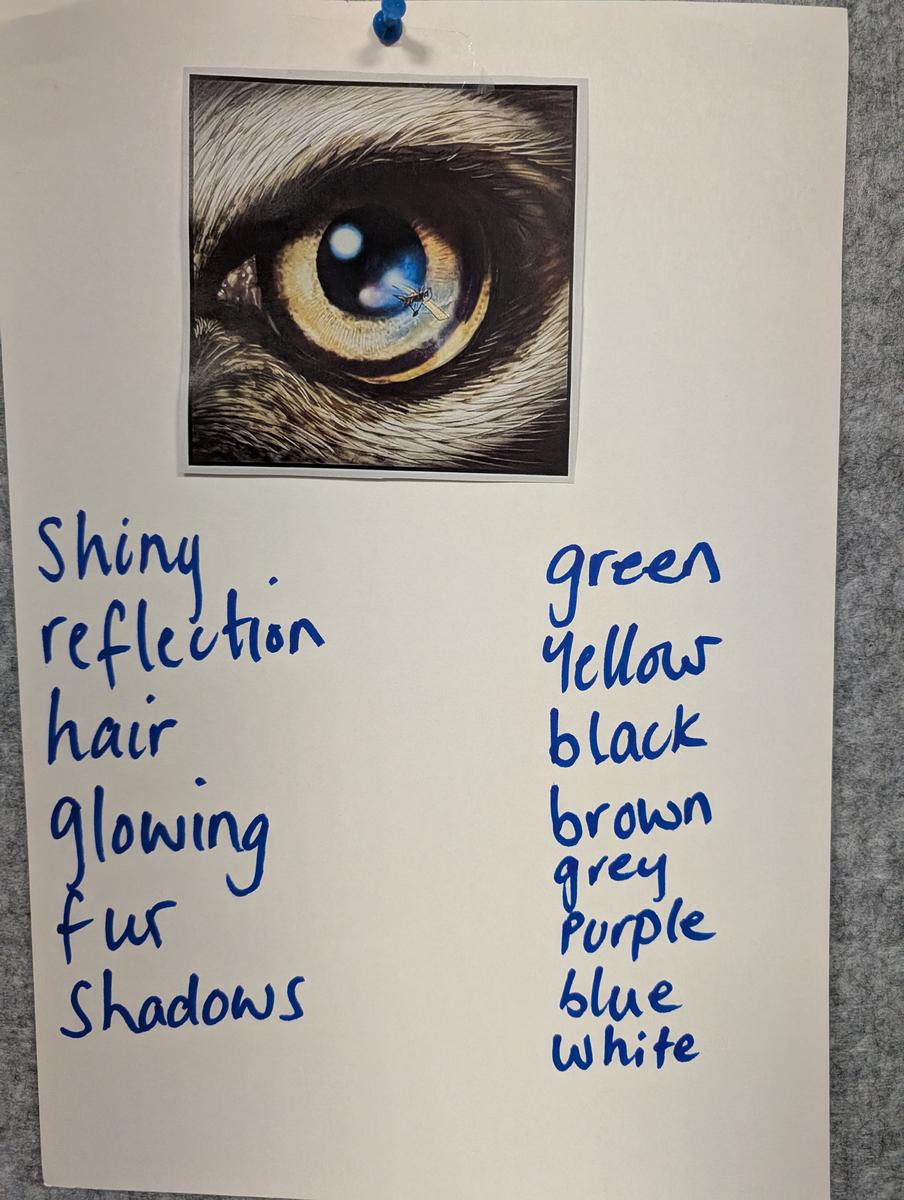 Shiny
reflection
hair
glowing
fur
Shadows
green
Yellow
black
brown
grey
Purple
blue
white